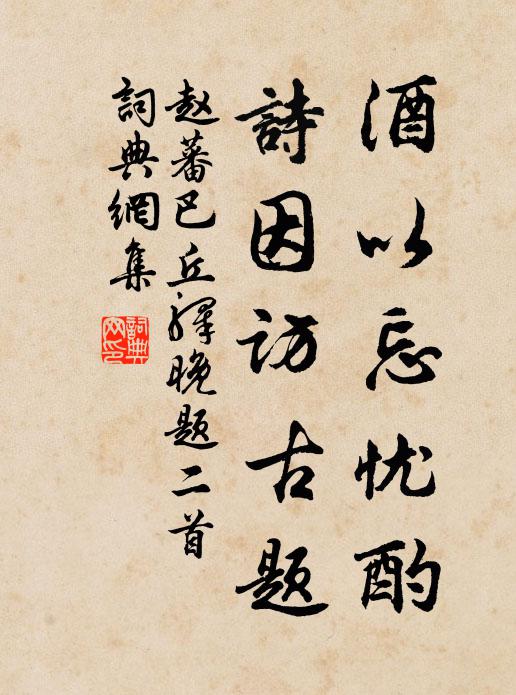 酒以忘忧酌
詩因访古题
赵蕃巴丘驛晚题二首
詞典網集
詞典網印